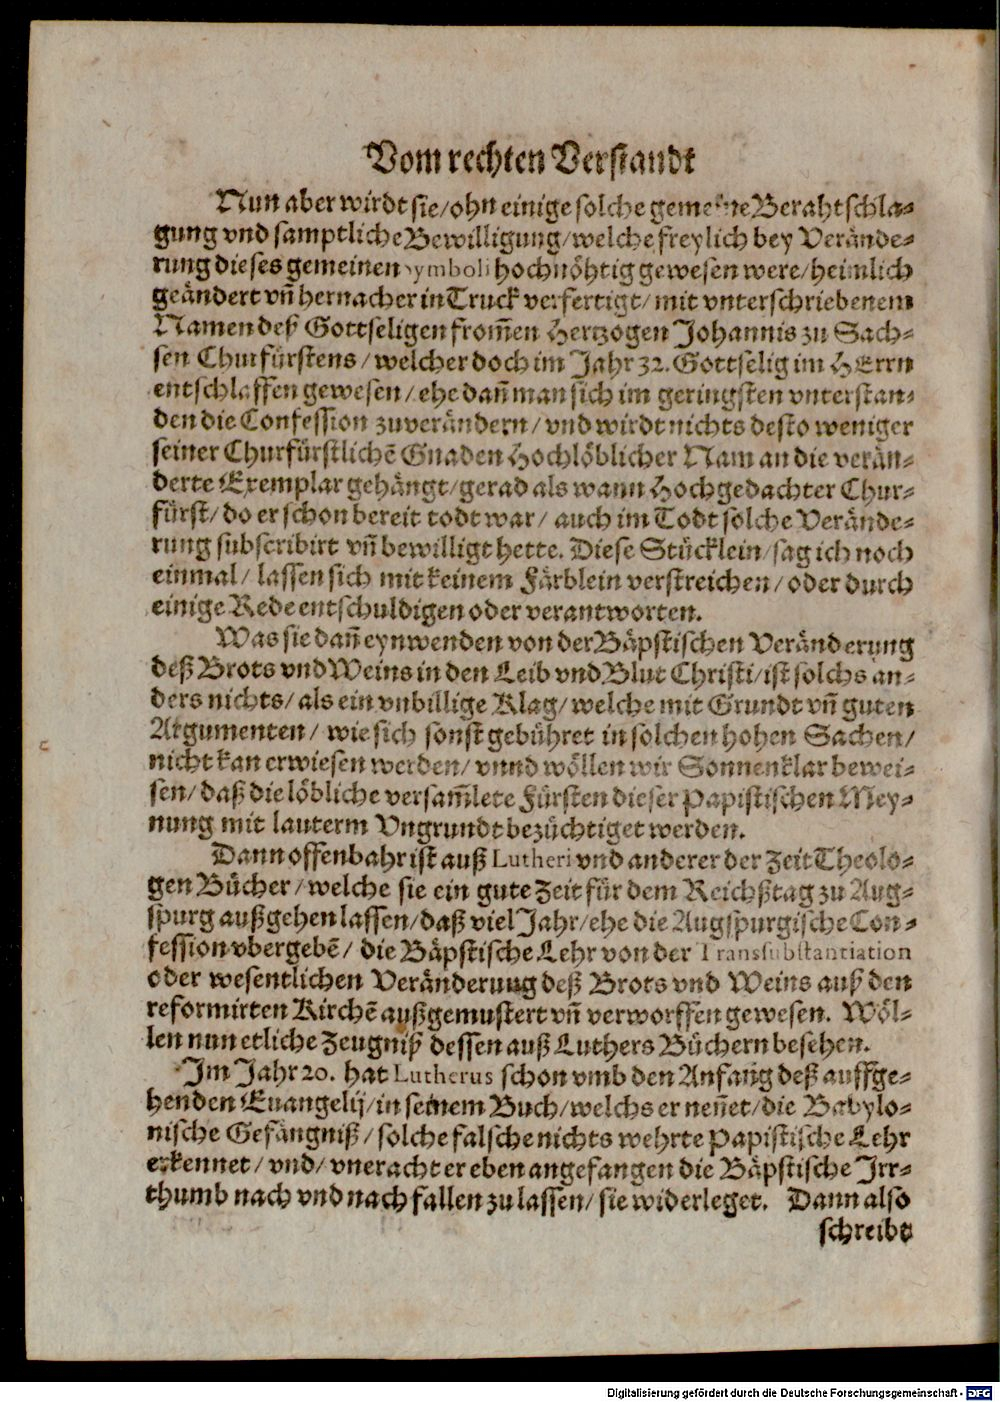 Vom rechten Verstandt
Nun aber wirdt sie/ ohn einige solche gemeine Berahtschla-
gung vnd samptliche Bewilligung/ welche freylich bey Verände-
rung dieses gemeinen Symboli hochnöhtig gewesen were/ heimlich
geändert vñ hernacher in Truck verfertigt/ mit vnterschriebenem
Namen deß Gottseligen from̃en Hertzogen Johannis zu Sach-
sen Churfürstens/ welcher doch im Jahr 32. Gottselig im HErrn
entschlaffen gewesen/ ehe dañ man sich im geringsten vnterstan-
den die Confession zuverändern/ vnd wirdt nichts desto weniger
seiner Churfürstlichẽ Gnaden Hochlöblicher Nam an die verän-
derte Exemplar gehängt/ gerad als wann Hochgedachter Chur-
fürst/ do er schon bereit todt war/ auch im Todt solche Verände-
rung subscribirt vñ bewilligt hette. Diese Stücklein/ sag ich noch
einmal/ lassen sich mit keinem Färblein verstreichen/ oder durch
einige Rede entschuldigen oder verantworten.
Was sie dañ eynwenden von der Bäpstischen Veränderung
deß Brots vnd Weins in den Leib vnd Blut Christi/ ist solchs an-
ders nichts/ als ein vnbillige Klag/ welche mit Grundt vñ guten
Argumenten/ wie sich sonst gebühret in solchen hohen Sachen/
nicht kan erwiesen werden/ vnnd wöllen wir Sonnenklar bewei-
sen/ daß die löbliche versam̃lete Fürsten dieser Papistischen Mey-
nung mit lauterm Vngrundt bezüchtiget werden.
Dann offenbahr ist auß Lutheri vnd anderer der Zeit Theolo-
gen Bücher/ welche sie ein gute Zeit für dem Reichßtag zu Aug-
spurg außgehen lassen/ daß viel Jahr/ ehe die Augspurgische Con-
fession vbergebẽ/ die Bäpstische Lehr von der Transsubstantiation
oder wesentlichen Veränderung deß Brots vnd Weins auß den
reformirten Kirchẽ außgemustert vñ verworffen gewesen. Wöl-
len nun etliche Zeugniß dessen auß Luthers Büchern besehen.
Im Jahr 20. hat Lutherus schon vmb den Anfang deß auffge-
henden Euangelij/ in seinem Buch/ welchs er neñet/ die Babylo-
nische Gefängniß/ solche falsche nichts wehrte Papistische Lehr
erkennet/ vnd/ vneracht er eben angefangen die Bäpstische Irr-
thumb nach vnd nach fallen zu lassen/ sie widerleget. Dann also
schreibt
Digitalisierung gefördert durch die Deutsche Forschungsgemeinschaft - DFG